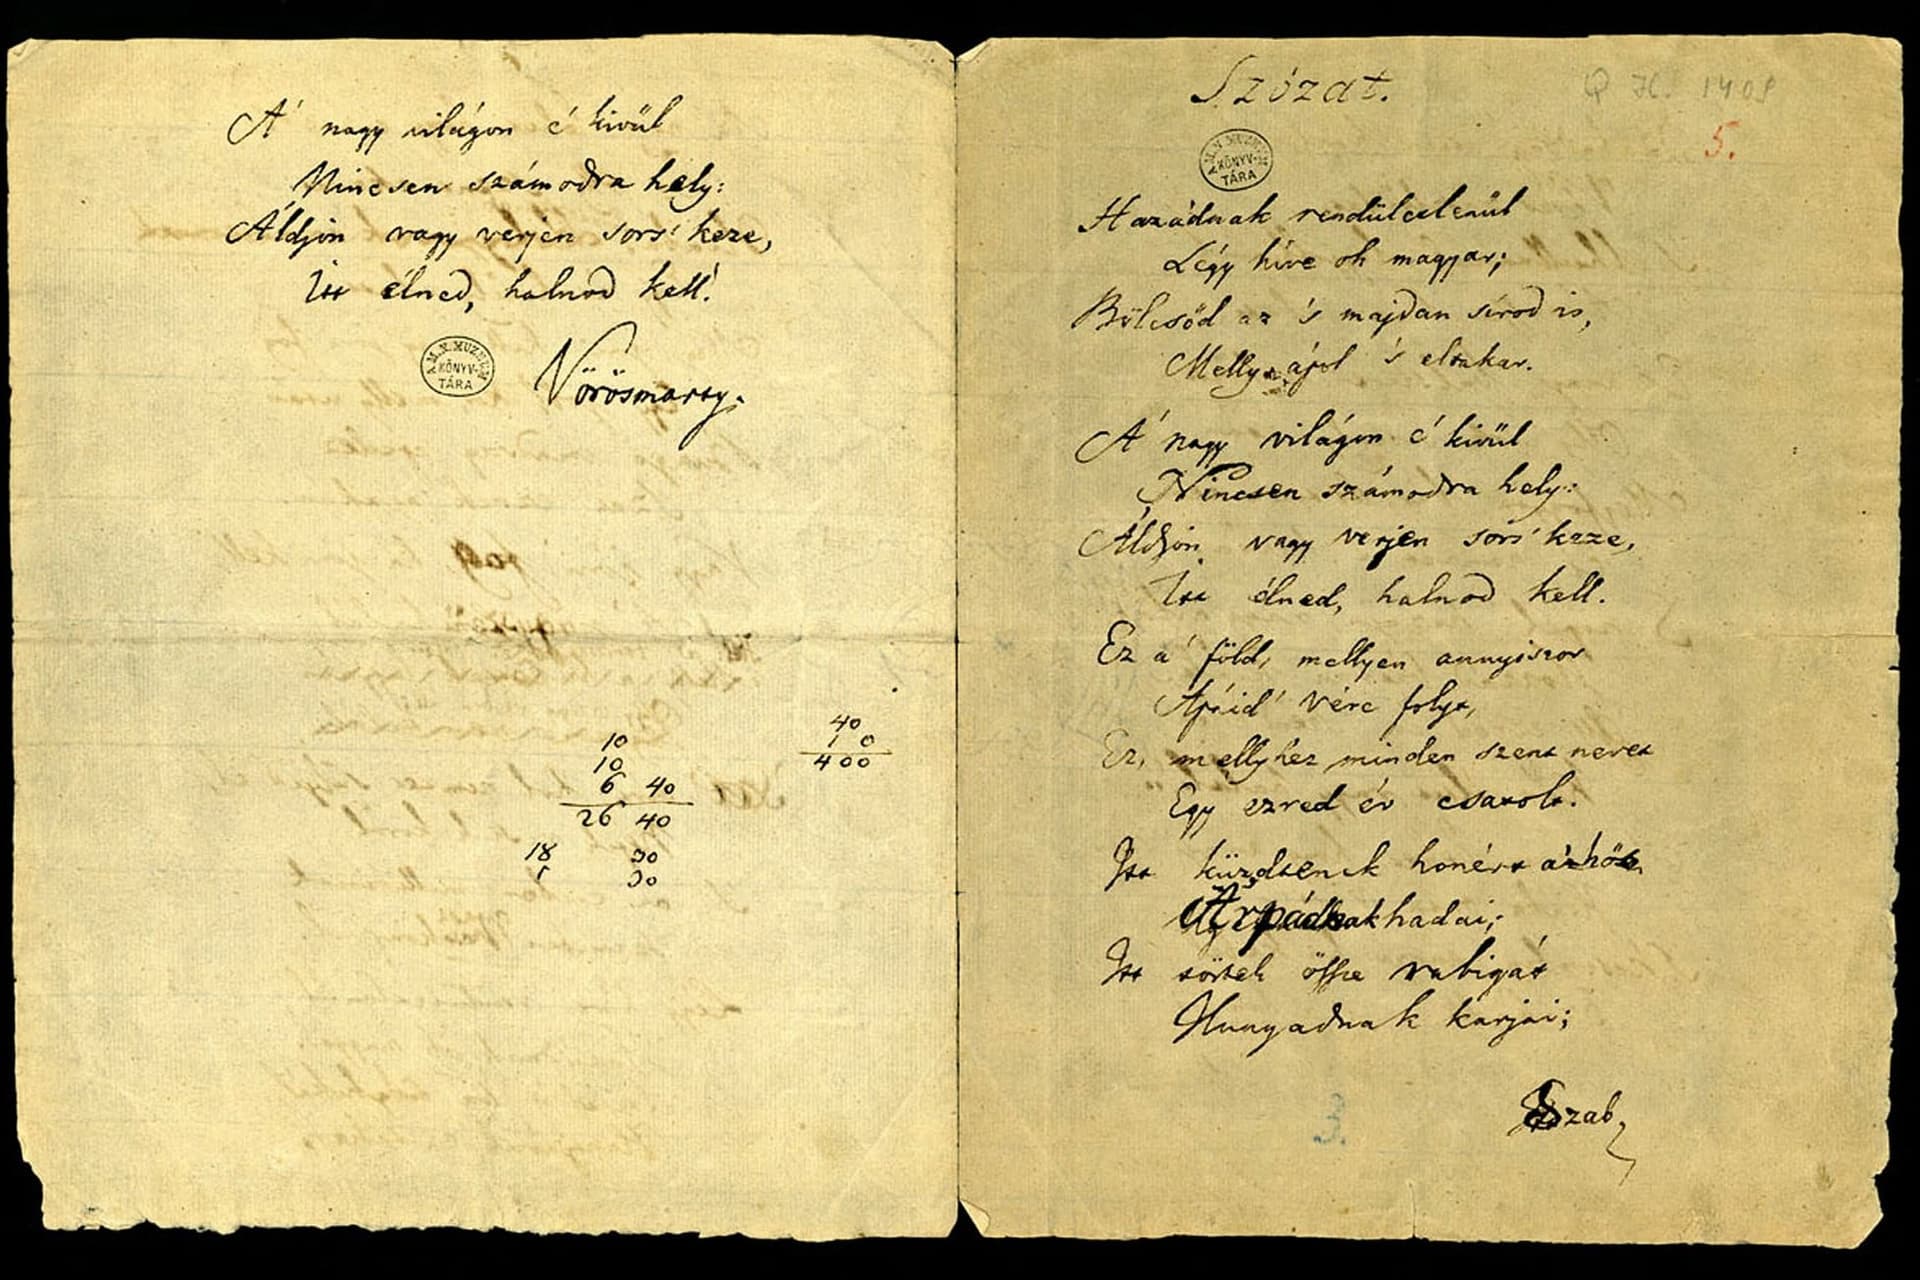 A' nagy világon é kivül
Nincsen számodra hely:
Áldjon vagy verjen sors' keze,
Itt élned, halnod kell!
A M. N. MUZEUM
KÖNYV-
TÁRA
Vörösmarty.
40
1 0
400
10
10
6 40
26 40
18 30
30
Szózat.
Q H. 1409
5.
A M. N. MUZEUM
KÖNYV-
TÁRA
Hazádnak rendületlenül
Légy híve oh magyar;
Bölcsőd az 's majdan sírod is,
Melly ápol 's eltakar.
A' nagy világon é kivül
Nincsen számodra hely:
Áldjon vagy verjen sors' keze,
Itt élned, halnod kell.
Ez a' föld, mellyen annyiszor
Apáid' vére folyt,
Ez, mellyhez minden szent nevet
Egy ezred év csatolt.
Itt küzdtenek honért a' hős
Árpádnak hadai;
Itt törtek össze rabigát
Hunyadnak karjai;
Szab